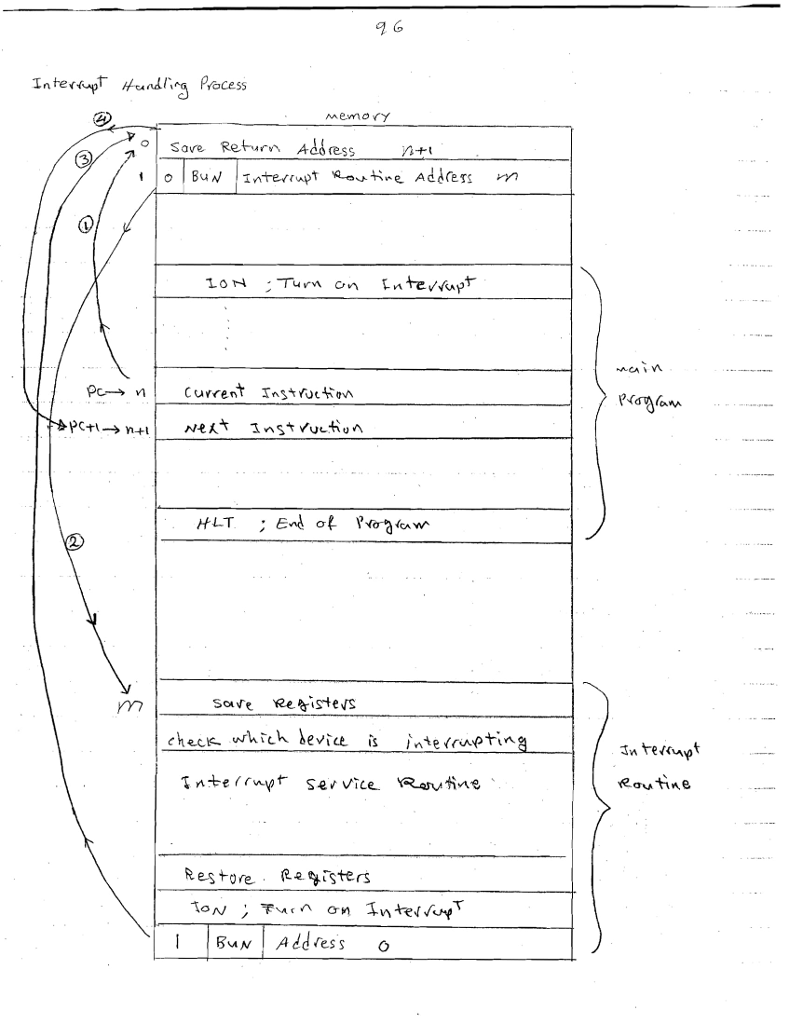 96
Interrupt Handling Process
memory
④
0 Save Return Address n+1
③
1 0 BUN Interrupt Routine Address m
①
ION ; Turn on Interrupt
main
PC → n Current Instruction
Program
PC+1 → n+1 Next Instruction
HLT ; End of Program
②
m Save Registers
check which device is interrupting
Interrupt
Interrupt Service Routine
Routine
Restore Registers
ION ; Turn on Interrupt
1 BUN Address 0